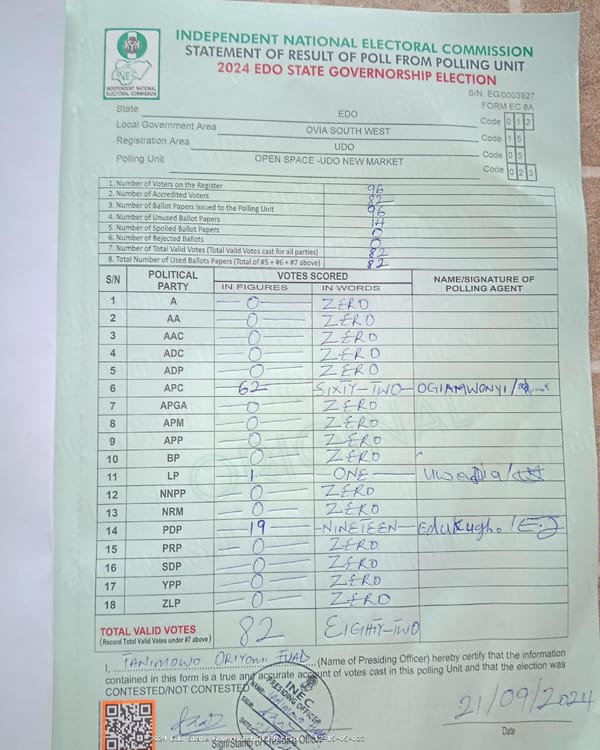 INDEPENDENT NATIONAL ELECTORAL COMMISSION
STATEMENT OF RESULT OF POLL FROM POLLING UNIT
2024 EDO STATE GOVERNORSHIP ELECTION
INEC
INDEPENDENT NATIONAL ELECTORAL COMMISSION
S/N. EG/0003927
FORM EC 8A
State EDO Code 0 1 2
Local Government Area OVIA SOUTH WEST Code 1 5
Registration Area UDO Code 0 5
Polling Unit OPEN SPACE -UDO NEW MARKET Code 0 2 3
1. Number of Voters on the Register 96
2. Number of Accredited Voters 82
3. Number of Ballot Papers Issued to the Polling Unit 96
4. Number of Unused Ballot Papers 14
5. Number of Spoiled Ballot Papers 0
6. Number of Rejected Ballots 0
7. Number of Total Valid Votes (Total Valid Votes cast for all parties) 82
8. Total Number of Used Ballots Papers (Total of #5 + #6 + #7 above) 82
S/N POLITICAL PARTY VOTES SCORED NAME/SIGNATURE OF POLLING AGENT
IN FIGURES IN WORDS
1 A 0 ZERO
2 AA 0 ZERO
3 AAC 0 ZERO
4 ADC 0 ZERO
5 ADP 0 ZERO
6 APC 62 SIXTY-TWO OGIAMWONYI/
7 APGA 0 ZERO
8 APM 0 ZERO
9 APP 0 ZERO
10 BP 0 ZERO
11 LP 1 ONE
12 NNPP 0 ZERO
13 NRM 0 ZERO
14 PDP 19 NINETEEN
15 PRP 0 ZERO
16 SDP 0 ZERO
17 YPP 0 ZERO
18 ZLP 0 ZERO
TOTAL VALID VOTES 82 EIGHTY-TWO
(Record Total Valid Votes under #7 above)
I, TANIMOWO ORIYOMI FUAD (Name of Presiding Officer) hereby certify that the information
contained in this form is a true and accurate account of votes cast in this polling Unit and that the election was
CONTESTED/NOT CONTESTED
INEC
PRESIDING OFFICER
21/09/2024
Date
Sign/Stamp of Presiding Officer